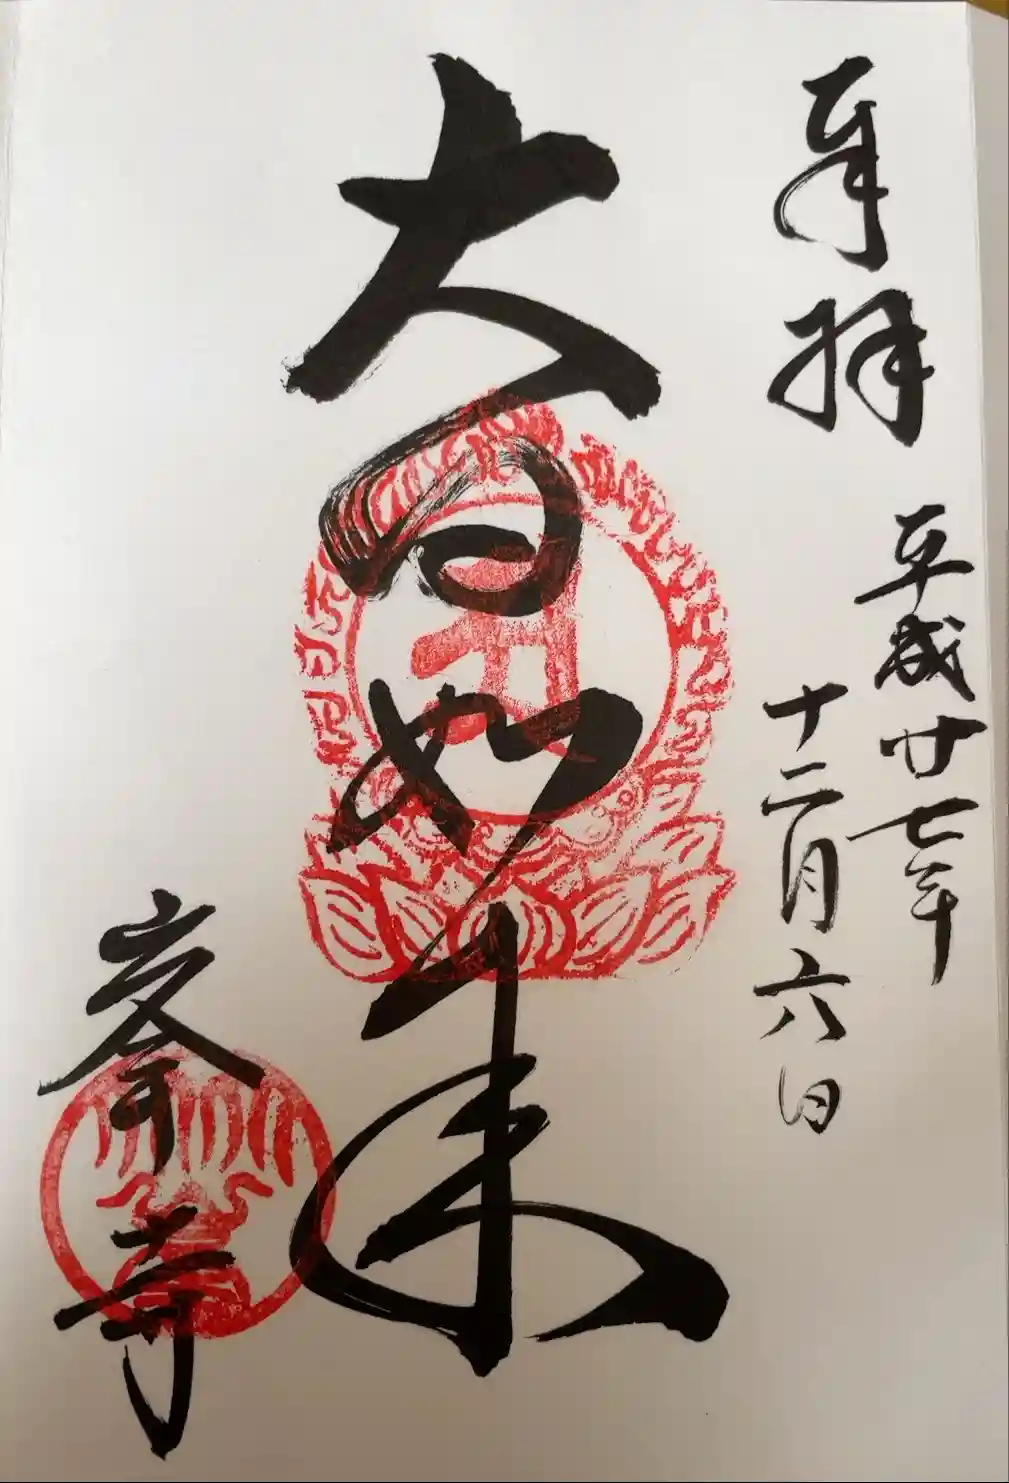 奉拝
平成廿七年
十二月六日
大日如来
寺